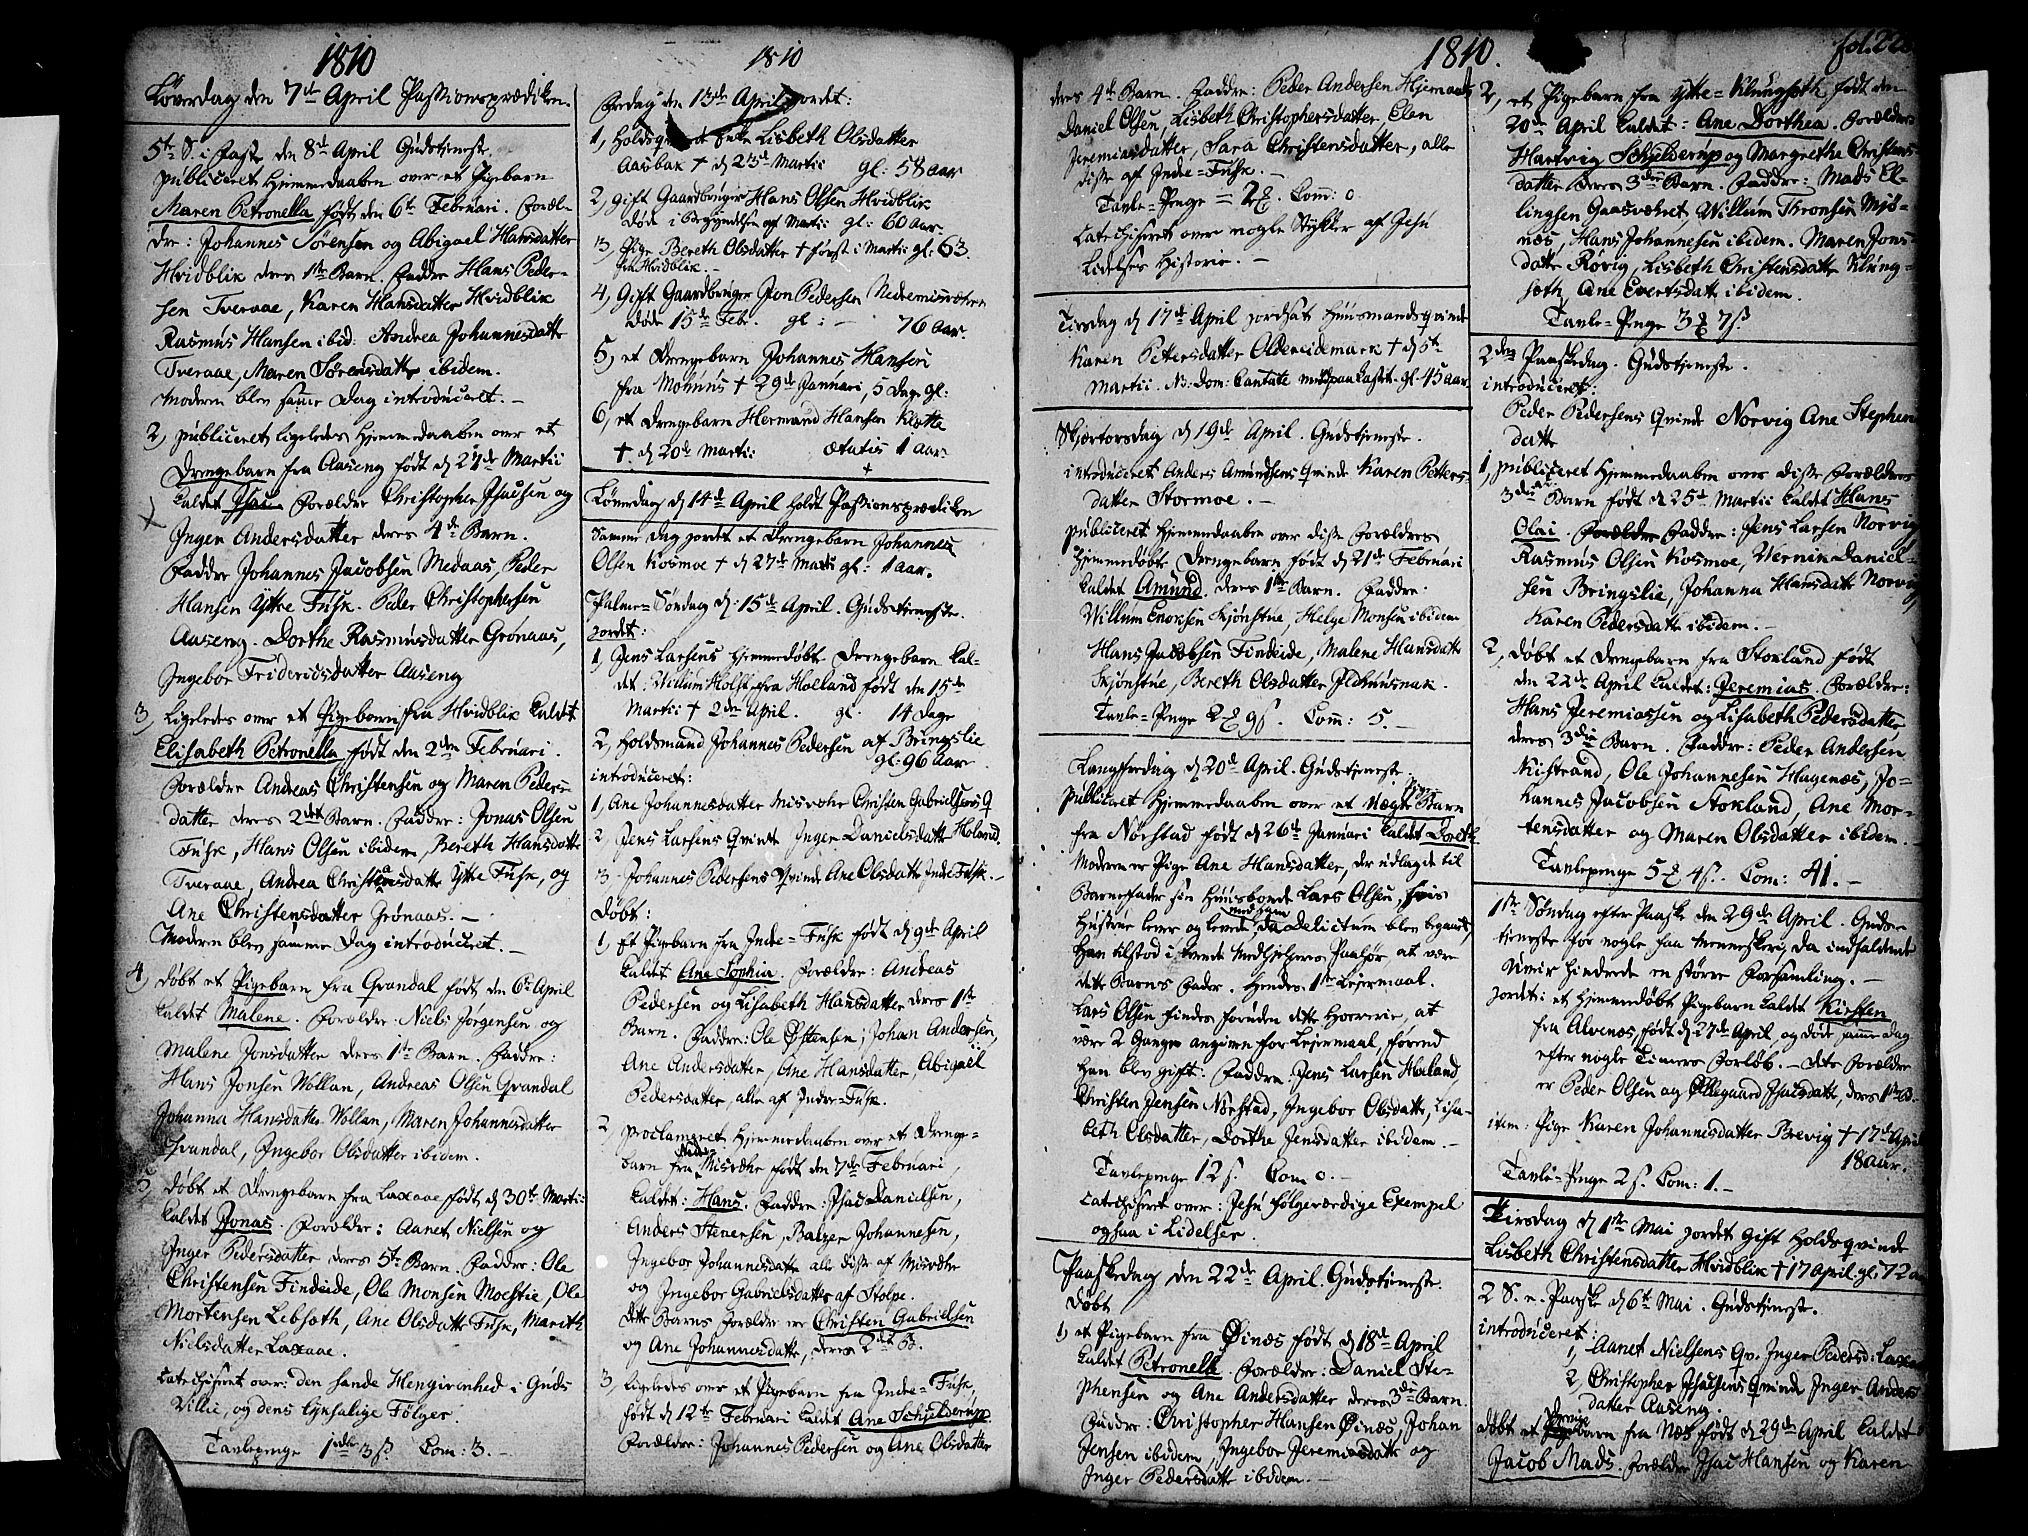 1810
Løverdag den 7de April Passionsprædiken.
5te S. i Faste den 8de April Gudstjeneste.
publiceret Hjemmedaaben over et Pigebarn
Maren Petronella født den 6te Februari. Foræl-
dre: Johannes Sørensen og Abigael Hansdatter
Hvidblik deres 1ste Barn. Faddre Hans Peder-
sen Tveraae, Karen Hansdatter Hvidblik
Rasmus Hansen ibid: Andrea Johannesdatter
Tveraae, Maren Sørensdatter ibidem.
Moderen blev samme Dag introduceret. -
2, publiceret ligeledes Hjemmedaaben over et
Drengebarn fra Aaseng født d 27de Martii
kaldet Isac Forældre Christopher Isacsen og
Inger Andersdatter deres 4de Barn.
Faddre Johannes Jacobsen Medaas, Peder
Hansen Ytre Fusk. Peder Christophersen
Aaseng. Dorthe Rasmusdatter Grønaas,
Ingebor Fridericsdatter Aaseng
3, Ligeledes over et Pigebarn fra Hvidblik kaldet
Elisabeth Petronella født den 2den Februari.
Forældre Andreas Christensen og Maren Peders-
datter deres 2det Barn. Faddre: Jonas Olsen
Fusk, Hans Olsen ibidem, Bereth Hansdatter
Tveraae, Andrea Christensdatter Ytre Fusk, og
Ane Christensdatter Grønaas. -
Moderen blev samme Dag introduceret. -
4, døbt et Pigebarn fra Qvandal født den 6te April
kaldet Malene. Forældre: Niels Jørgensen og
Malene Jonsdatter deres 1ste Barn. Faddre:
Hans Jonsen Vollan, Andreas Olsen Qvandal
Johanna Hansdatter Vollan, Maren Johannesdatter
Qvandal, Ingebor Olsdatter ibidem.
5, døbt et Drengebarn fra Laxaae født d 30te Martii
kaldet Jonas. Forældre: Aanet Nielsen og
Inger Pedersdatter deres 5te Barn. Faddre: Ole
Christensen Findeide, Ole Monsen Moestie, Ole
Mortensen Lebsøth, Ane Olsdatter Fusk, Marith
Nielsdatter Laxaae.
Catechiseret over: den sande Hengivenhed i Guds
Villie, og dens lyksalige Følger.
Tavlepenge 1 rdlr 3 s. Com: 3. -
1810
Fredag den 13de April jordet:
1, Holdsqvinde Enke Lisbeth Olsdatter
Aasbak † d 23de Martii gl: 58 aar
2, gift Gaardbruger Hans Olsen Hvidblik
døde i begyndelsen af Martii gl: 60 aar.
3, Pige Bereth Olsdatter † først i Martii gl: 63.
fra Hvidblik. -
4, Gift Gaardbruger Jon Pedersen Nedremisvæhr
døde 15de Feb. gl: - 76 aar.
5, et Drengebarn Johannes Hansen
fra Mohuus † 29de Januari, 5 Dage gl:
6, et Drengebarn Hermand Hansen Klette
† d 20de Martii ætatis 1 aar.
Løverdag d 14de April holdt Passionsprædiken
Samme dag jordet et Drengebarn Johannes
Olsen Kosmoe † d 27de Martii gl: 1 aar.
Palme-Søndag d: 15de April. Gudstjeneste.
jordet:
1, Jens Larsens hjemmedøbt Drengebarn kal-
det Willum Holst fra Holland født den 15de
Martii † 2den April. gl. 14 Dage
2, Holdsmand Johannes Pedersen af Bringslie
gl: 96 Aar
introduceret:
1, Ane Johannesdatter Misvæhr Christen Gabrielsens Q
2, Jens Larsens Qvinde Inger Danielsdatter Holand.
3, Johannes Pedersens Qvinde Ane Olsdatter Indre Fusk. -
Døbt:
1, Et Pigebarn fra Indre-Fusk født d 9de April
kaldet Ane Sophia. Forældre: Andreas
Pedersen og Lisabeth Hansdatter deres 1ste
Barn. Faddre: Ole Østensen, Johan Andersen,
Ane Andersdatter, Ane Hansdatter, Abigaël
Pedersdatter, alle af Indre-Fusk.
2, proclameret Hjemmedaaben over et Drenge-
barn fra Nedre Misvæhr født den 7de Februari,
kaldet: Hans. Faddre: Isac Danielsen,
Anders Steversen, Balzer Johannesen,
Ingebor Johannesdatter alle disse af Misvæhr
og Ingebor Gabrielsdatter af Stolpe.
dette Barns Forældre er Christen Gabrielsen
og Ane Johannesdatter, deres 2det B.
3, ligeledes over et Pigebarn fra Indre-Fusk,
født d 12te Februari kaldet Ane Schjelderup.
Forældre: Johannes Pedersen og Ane Olsdatter
1810.
deres 4de Barn. Faddre: Peder Andersen Hjemaas
Daniel Olsen, Lisbeth Christophersdatter, Elen
Jeremiasdatter, Sara Christensdatter, alle
disse af Indre-Fusk. -
Tavle-Penge = 2 . Com: 0
Catechiseret over nogle Stykker af Jesu
Lidelses Historie. -
Tirsdag d 17de April jordsat Huusmandsqvinde
Karen Pettersdatter Oldereidemark † d 5te
Martii. N. Dom: Cantate gl. 45 aar
Skjærtorsdag d 19de April. Gudstjeneste.
introduceret Anders Amundsens Qvinde Karen Petters-
datter Stormoe. -
publiceret Hjemmedaaben over disse Forældres
hjemmedøbte Drengebarn født d 21de Februari
kaldet Amund, deres 1ste Barn. Faddre:
Willum Enoksen Skjønstue, Helge Monsen ibidem
Hans Jacobsen Findeide, Malene Hansdatter
Skjønstue, Bereth Olsdatter Ildhuusnak.
Tavle-Penge 2 9 s. Com: 5. -
Langfredag d 20de April. Gudstjeneste.
Publiceret Hjemmedaaben over et Uægte Pige Barn
fra Nørstad født d 26de Januari kaldet Dorth.
Moderen er Pige Ane Hansdatter, der udlagde til
Barnefader sin Huusbonde Lars Olsen, hvis
Hustrue lever og levede med ham da delictum blev begaaet,
Han tilstod i tvende Medhjelperes Paahør at være
dette Barns Fader. Hendes 1ste Lejermaal.
Lars Olsen findes foruden dette Horerie, at
være 2 Gange angiven for Lejermaal, førend
han blev gift. Faddre: Jens Larsen Holand,
Christen Jensen Nørstad, Ingebor Olsdatter, Lisa-
beth Olsdatter, Dorthe Jensdatter ibidem. -
Tavlepenge 12 s. Com 0. -
Catechiseret over: Jesu følgeværdige Exempel
ogsaa i Lidelser.
Paaskedag den 22de April. Gudstjeneste.
Døbt
1, et Pigebarn fra Øinæs født d 18de April
kaldet Petronelle. Forældre: Daniel Ste-
phensen og Ane Andersdatter deres 3die Barn.
Faddre: Christopher Hansen Øinæs, Johan
Jensen ibidem, Ingebor Jeremiasdatter og
Inger Pedersdatter ibidem. -
fol. 22
2, et Pigebarn fra Ytre-Klungsøth født den
20de April kaldet: Ane Dorthea. Forældre
Hartvig Schjelderup og Margrethe Christens-
datter deres 3die Barn. Faddre: Mads El-
lingsen Gaasværet, Willum Thronsen Mjø-
næs, Hans Johannesen ibidem. Maren Jons-
datter Røvig, Lisbeth Christensdatter Klung-
søth, Ane Evertsdatter ibidem.
Tavle-Penge 3 7 s.
2den Paaskedag. Gudstjeneste.
introduceret.
Peder Pedersens Qvinde Norvig Ane Stephens
datter
1, publiceret Hjemmedaaben over disse Forældres
3die Barn født d 25de Martii kaldet Hans
Olai Forældre Faddre: Jens Larsen Norvig
Rasmus Olsen Kosmoe, Vernin Daniel-
sen Bringslie, Johanna Hansdatter Norvig,
Karen Pedersdatter ibidem. -
2, døbt et Drengebarn fra Stokland født
den 22de April kaldet: Jeremias. Forældre:
Hans Jeremiassen og Lisabeth Pedersdatter,
deres 3die Barn. Faddre: Peder Andersen
Kistrand, Ole Johannesen Hagenæs, Jo-
hannes Jacobsen Stokland, Ane Mor-
tensdatter og Maren Olsdatter ibidem.
Tavlepenge 5 4 s. Com: 41. -
1ste Søndag efter Paaske den 29de April. Guds-
tjeneste for nogle faa Mennesker, da indfaldende
Uveir hindrede en større Forsamling. -
jordet: et hjemmedøbt Pigebarn kaldet Kirsten
fra Alvenæs, født d 27de April, og døde samme dag
efter nogle Timers Forløb. - Dets Forældre
er Peder Olsen og Øllegaard Isacsdatter, deres 1ste B. -
item: Pige Karen Johannesdatter Brevig † 17de April
18 aar.
Tavle-Penge 2 s. Com: 1. -
Tirsdag d 1ste Mai jordet gift Holdsqvinde
Lisbeth Christensdatter Hvidblik † 17 April. gl: 72 a
2 S. e. Paaske d 6te Mai. Gudstjeneste.
introduceret:
1, Aanet Nielsens Qv. Inger Pedersd: Laxaae
2, Christopher Isacsens Qvinde Inger Anders
datter Aaseng.
døbt et Drenge barn fra Næs født d 29de April kaldet
Jacob Mads. Forældre Isac Hansen og Karen